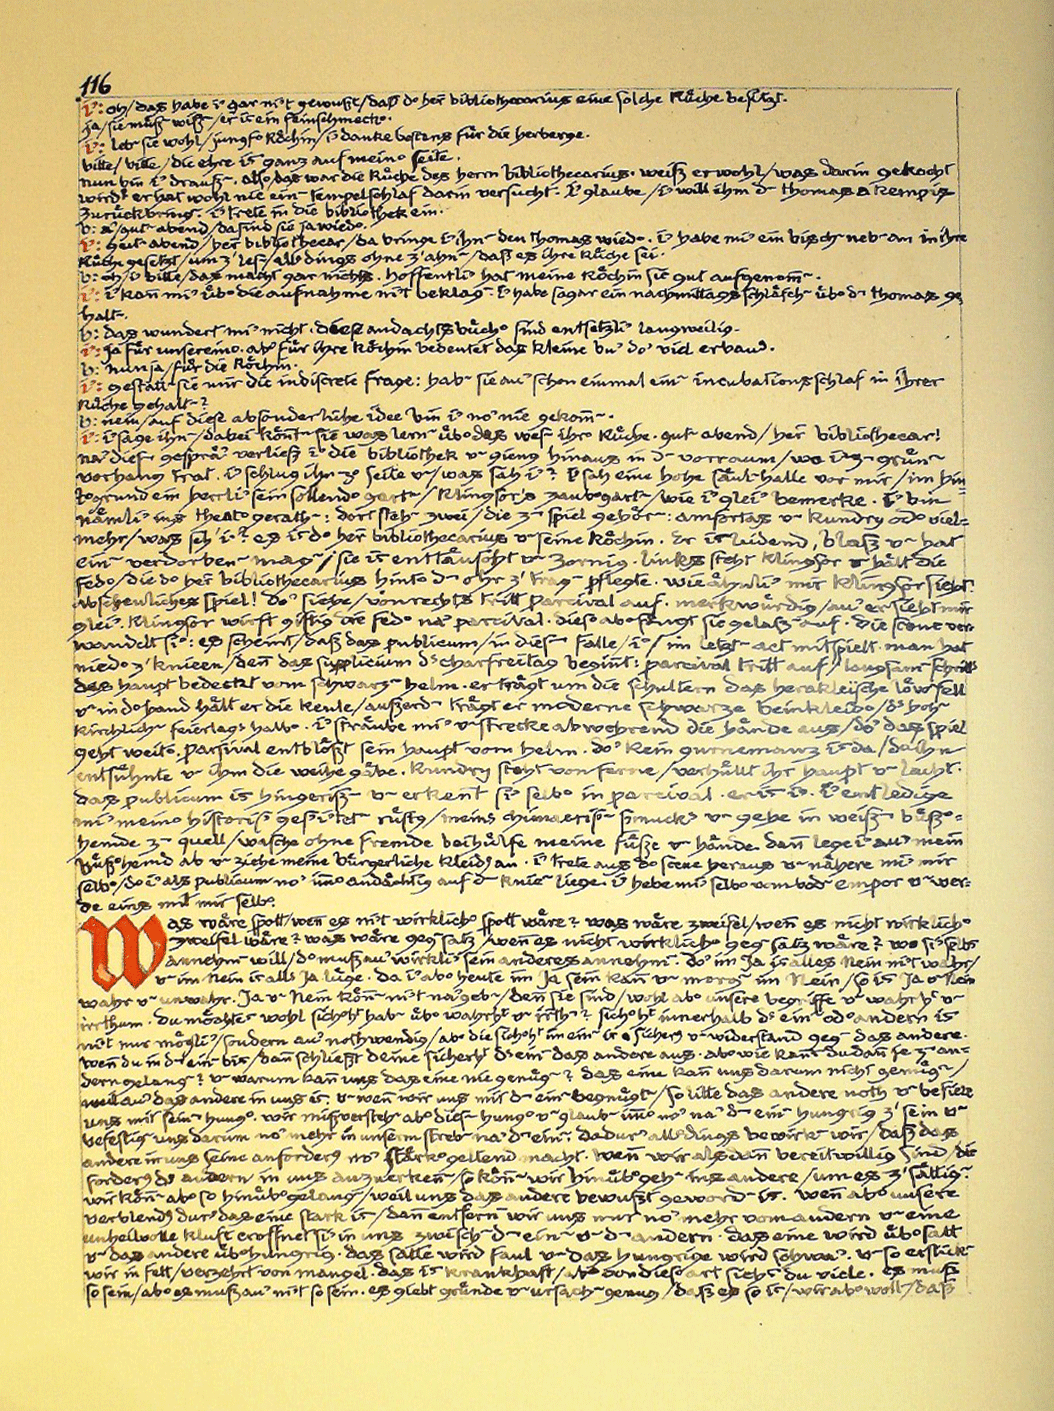 116
i: oh/das habe i gar nit gewußt/daß do herr bibliothecarius eine solche Küche besitzt.
ja/sie müß wiß/er is ein feinschmecko.
i: leb sie wohl/jungfo Köchin/i danke bestens für die herberge.
bitte/bitte/die ehre is ganz auf meino seite.
nun bin i drauß. also das war die Küche des herrn bibliothecarius. weiß er wohl/was darin gekocht
wird? er hat wohl nie ein tempelschlaf darin versucht. i glaube/i will ihm d thomas a kempis
zurückbring. i trete in die bibliothek ein.
b: a/gut abend/da sind sie ja wiedo.
i: gut abend/herr bibliothecar/da bringe i ihn den thomas wiedo. i habe mi ein bisch neb an in ihre
Küche gesetzt/um z' les/allodings ohne z' ahn/daß es ihre küche sei.
b: oh/i bitte/das macht gar nichts. hoffentli hat meine Köchin sie gut aufgenom.
i: i kan mi übo die aufnahme nit beklag. i habe sogar ein nachmittagsschläfch übo d thomas ge
halt.
b: das wundert mi nicht. diese andachtsbücho sind entsetzli langweilig.
i: ja für unsereino. abo für ihre köchin bedeutet das kleine bu do viel erbau.
b: nun ja/für die Köchin.
i: gestatt sie mir die indiscrete frage: hab sie au schon einmal ein incubationsschlaf in ihrer
küche gehalt?
b: nein/auf diese absonderliche idee bin i no nie gekom.
i: i sage ihn/dabei könt sie was lern übo das wes ihro Küche. gut abend/herr bibliothecar!
na dies gesprä verließ i die bibliothek u gieng hinaus in d vorraum/wo i z grün
vorhang trat. i schlug ihn z seite u/was sah i? i sah eine hohe säulhalle vor mir/im hin-
togrund ein herrli sein sollendo gart/klingsor's zaubogart/wie i glei bemerke. i bin
nämli ins theato gerath: dort steh zwei/die z spiel gehör: amfortas u kundry odo viel-
mehr/was seh i? es is do herr bibliothecarius u seine köchin. er is leidend, blaß u hat
ein verdorben mag/sie is enttäuscht u zornig. links steht klingsor u hält die
fedo/die do herr bibliothecarius hinto d ohr z' trag pflegte. wie ähnli mir klingsor sieht!
abscheuliches spiel! do siehe/von rechts tritt parcival auf. merkwürdig/au er sieht mir
glei. klingsor wirft giftig die fedo na parcival. dieso abo fängt sie gelaß auf. die scene ver-
wandelt si: es scheint/daß das publicum/in dies falle/i/im letzt act mitspielt. man hat
niedo z' knieen/den das supplicium ds charfreitag begint: parcival tritt auf/langsam schritts
das haupt bedeckt vom schwarz helm. er trägt um die schultern das herakleische löwfell
u in do hand hält er die keule/außerd trägt er moderne schwarze beinkleido/ds hoh
kirchlich feiertags halbo. i sträube mi u strecke abwehrend die hände aus/do das spiel
geht weito. parsival entblößt sein haupt vom helm. do kein gurnemanz is da/do ihn
entsühnte u ihm die weihe gäbe. kundry steht von ferne/verhüllt ihr haupt u lacht.
das publicum is hingeriß u erkent si selbo in parcival. er is i. i entledige
mi meino historis geschichtet rüstg/meins chimaeris smucks u gehe in weiß büßo-
hemde z quell/wasche ohne fremde beihülfe meine füße u hände. dan lege i au mein
büßohemd ab u ziehe meine bürgerliche kleido an. i trete aus do scene heraus u nähere mi mir
selbo/do i als publicum no imo andächtig auf d knie liege. i hebe mi selbo vom bod empor u wer-
de eins mit mir selbo.
Was wäre spott/wen es nit wirklicho spott wäre? was wäre zweifel/wen es nicht wirklicho
zweifel wäre? was wäre gegsatz/wen es nicht wirklicho gegsatz wäre? wo si selbs
annehm will/do muß au wirkli sein anderes annehm. do im Ja is alles Nein nit wahr/
u im Nein is alls Ja lüge. da i abo heute im Ja sein kan u morg im Nein/so is Ja u Nein
wahr u unwahr. Ja u Nein kön nit nageb/den sie sind/wohl abo unsere begriffe u wahrht u
irrthum. du möchtes wohl sichoht hab übo wahrht u irrth? sichoht innerhalb ds ein odo andern is
nit nur mögli/sondern au nothwendig/abo die sichoht im ein is sicherg u widerstand geg das andere.
wen du in d ein bis/dan schließt deine sicherht ds ein das andere aus. abo wie kans du dan je z an-
dern gelang? u warum kan uns das eine nie genüg? das eine kan uns darum nicht genüg/
weil au das andere in uns is. u wen wir uns mit d ein begnügt/so litte das andere noth u befiele
uns mit sein hungo. wir mißversteh abo dies hungo u glaub imo no na d ein hungrig z' sein u
befestig uns darum no mehr in unserm streb na d ein. dadur allodings bewirk wir/daß das
andere in uns seine anforderg no stärko geltend macht. wen wir alsdan bereitwillig sind/die
forderg ds andern in uns anzuerken/so kön wir hinübogeh ins andere/um es z' sättig.
wir kön abo so hinübogelang/weil uns das andere bewußt geword is. wen abo unsere
verblendg dur das eine stark is/dan entfern wir uns nur no mehr vom andern u eine
unheilvolle kluft eröffnet si in uns zwisch d ein u d andern. das eine wird übosatt
u das andere übohungrig. das satte wird faul u das hungrige wird schwa. u so erstick
wir in fett/verzehrt von mangel. das is krankhaft/abo von dieso art siehs du viele. es muß
so sein/abo es muß au nit so sein. es giebt gründe u ursach genug/daß es so is/wir abo woll/daß